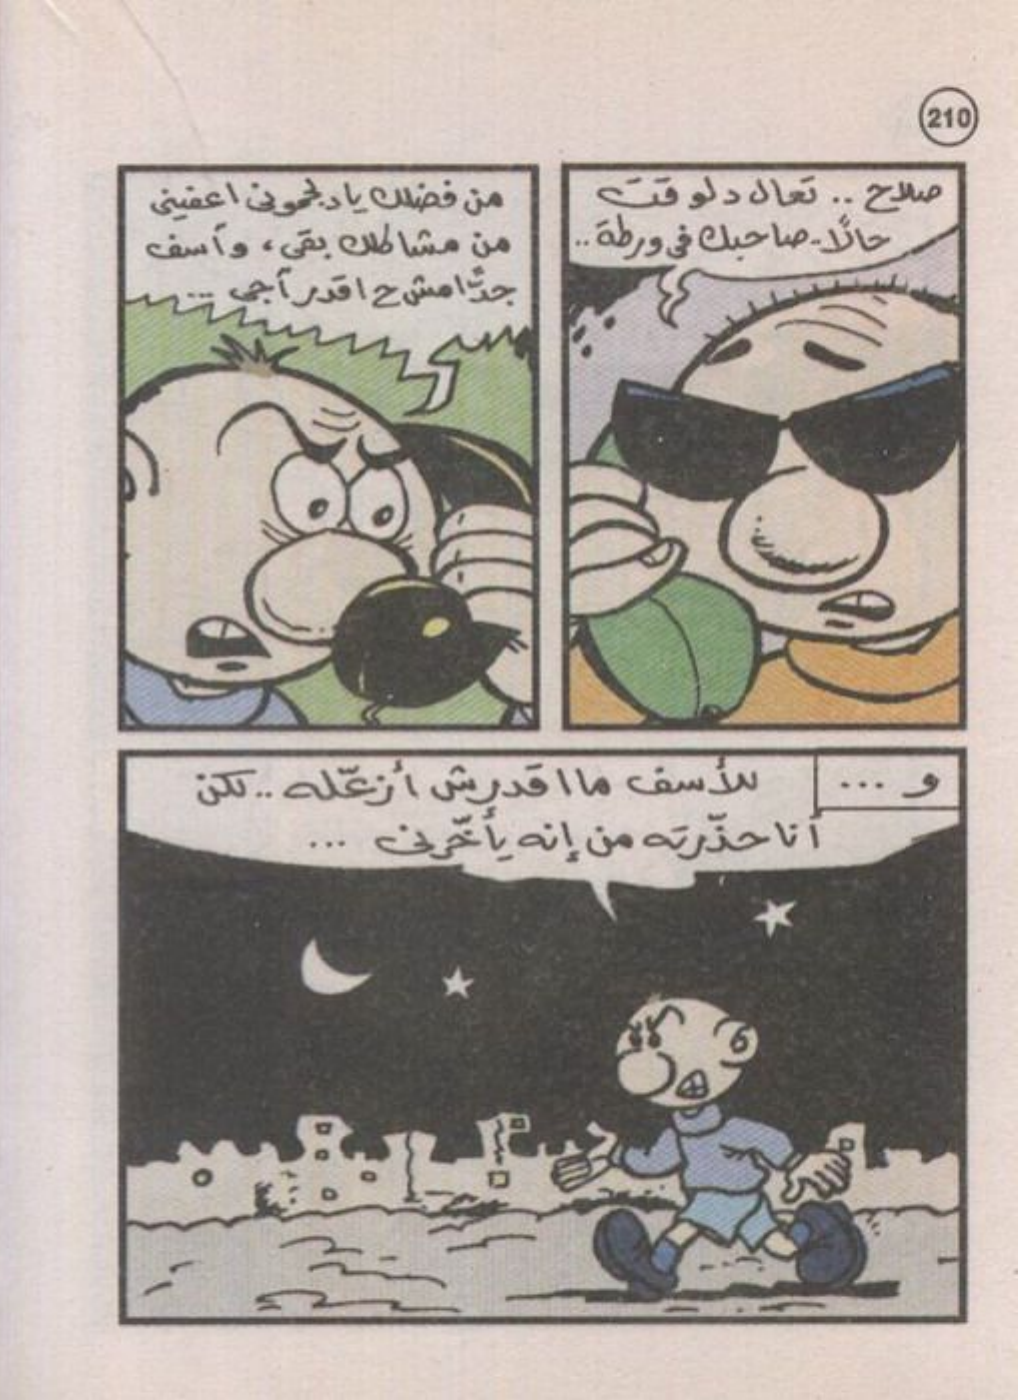 210
صلاح .. تعال دلوقت
حالًا - صاحبك فى ورطة ..
من فضلك يا دلحمونى اعفينى
من مشاكلك بقى ، وآسف
جدًّا مش ح اقدر آجى ...
و ...
للأسف ما اقدرش أزعّله .. لكن
أنا حذّرته من إنه يأخّرنى ...